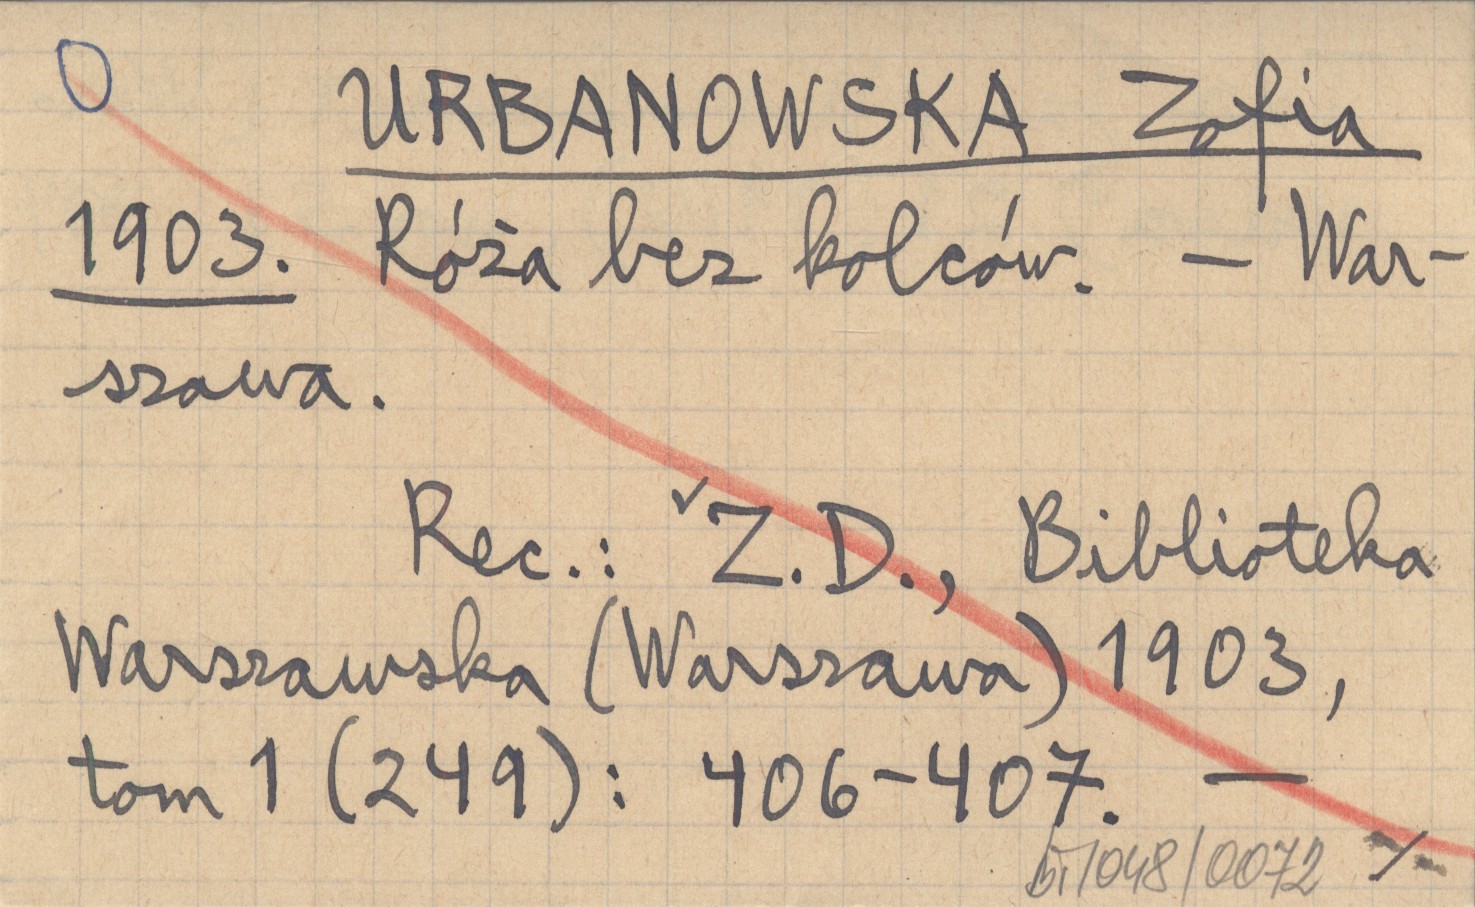 URBANOWSKA Zofia
1903. Róża bez kolców. — War-
szawa.
Rec.: Z.D., Biblioteka
Warszawska (Warszawa) 1903,
tom 1 (249): 406-407. —
BT/048/0072